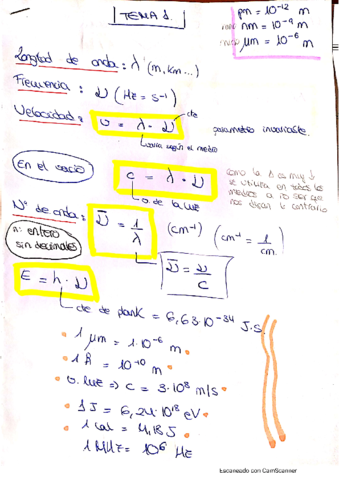 TEMA 1.
pm = 10⁻¹² m
nm = 10⁻⁹ m
μm = 10⁻⁶ m
Longitud de onda: λ (m, km...)
Frecuencia: ν (Hz = s⁻¹)
Velocidad: v = λ · ν
cte
parametro invariable.
varia según el medio
En el vacio
c = λ · ν
v de la luz
como la Δ es muy ↓
se utiliza en todos los
medios a no ser que
nos digan lo contrario
Nº de onda: ν̅ = 1/λ (cm⁻¹) (cm⁻¹ = 1/cm.)
n: entero
sin decimales
ν̅ = ν/c
E = h · ν
cte de plank = 6,63·10⁻³⁴ J·S.
1 μm = 1·10⁻⁶ m.
1 Å = 10⁻¹⁰ m.
v. luz => c = 3·10⁸ m/s
1J = 6,24·10¹⁸ eV
1 cal = 4,18J
1 MHz = 10⁶ Hz
Escaneado con CamScanner